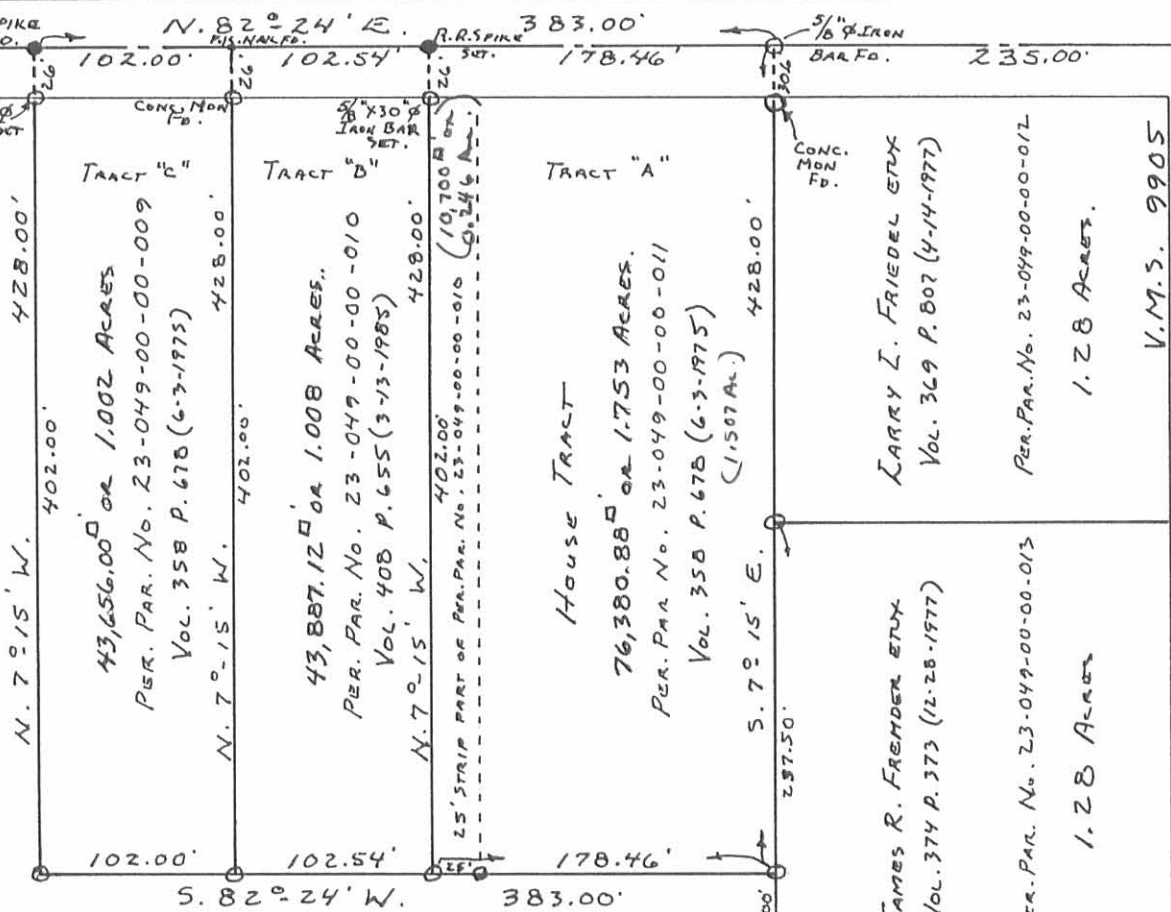 N. 82°-24' E. 383.00'
SPIKE
P.K. NAIL FD.
R.R. SPIKE
SET.
5/8"Ø IRON
BAR FD.
102.00' 102.54' 178.46' 235.00'
26' 26' 26' 30'
SET
CONC. MON
FD.
5/8"X30"Ø
IRON BAR
SET.
CONC.
MON
FD.
TRACT "C" TRACT "B" TRACT "A"
N. 7°-15' W.
428.00'
402.00'
43,656.00□' OR 1.002 ACRES
PER. PAR. No. 23-049-00-00-009
VOL. 358 P. 678 (6-3-1975)
N. 7°-15' W.
428.00'
402.00'
43,887.12□' OR 1.008 ACRES.
PER. PAR. No. 23-049-00-00-010
VOL. 408 P. 655 (3-13-1985)
N. 7°-15' W.
428.00'
402.00'
25' STRIP PART OF PER. PAR. No. 23-049-00-00-010
(10,700□' OR
0.246 AC.)
HOUSE TRACT
76,380.88□' OR 1.753 ACRES.
PER. PAR No. 23-049-00-00-011
VOL. 358 P. 678 (6-3-1975)
(1.507 AC.)
S. 7° 15' E.
428.00'
237.50'
LARRY I. FRIEDEL ETUX
VOL. 369 P. 807 (4-14-1977)
PER. PAR. No. 23-049-00-00-012
1.28 ACRES.
V.M.S. 9905
JAMES R. FREMDER ETUX
VOL. 374 P. 373 (12-28-1977)
PER. PAR. No. 23-049-00-00-013
1.28 ACRES
102.00' 102.54' 25' 178.46'
S. 82°-24' W. 383.00'